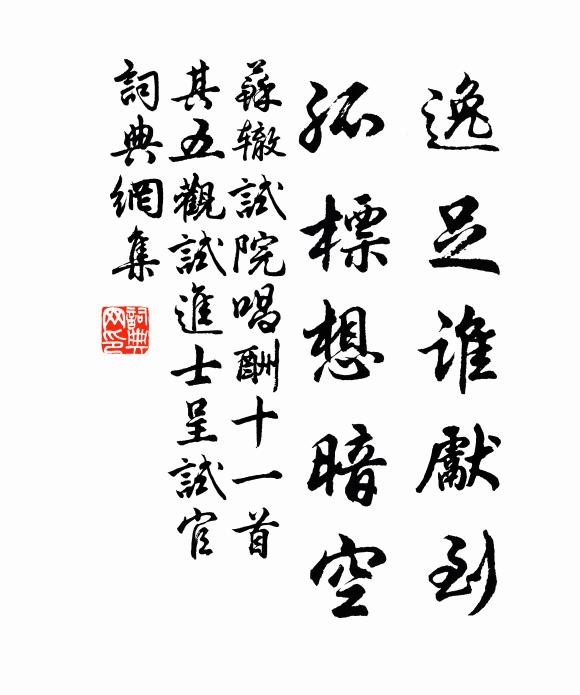 逸足誰獻到
孤標想暗空
蘇辙試院唱酬十一首
其五觀試進士呈試官
詞典網集
詞典网印